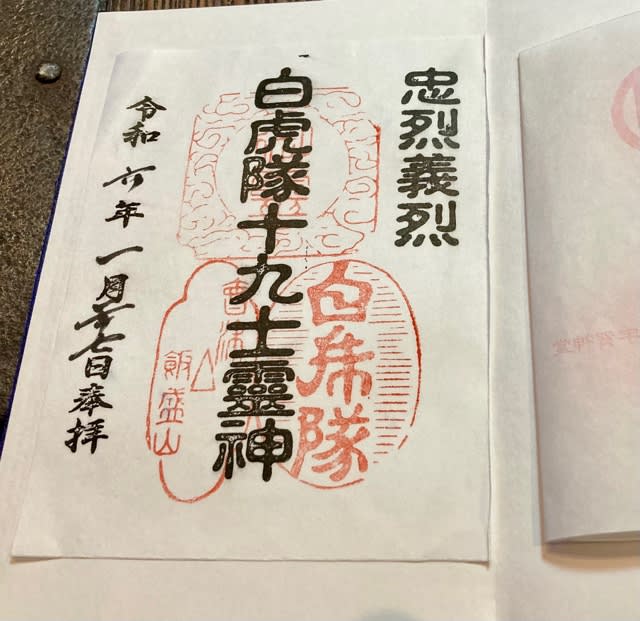 忠烈義烈
白虎隊十九士靈神
白虎隊
飯盛山
令和六年一月二十七日奉拝